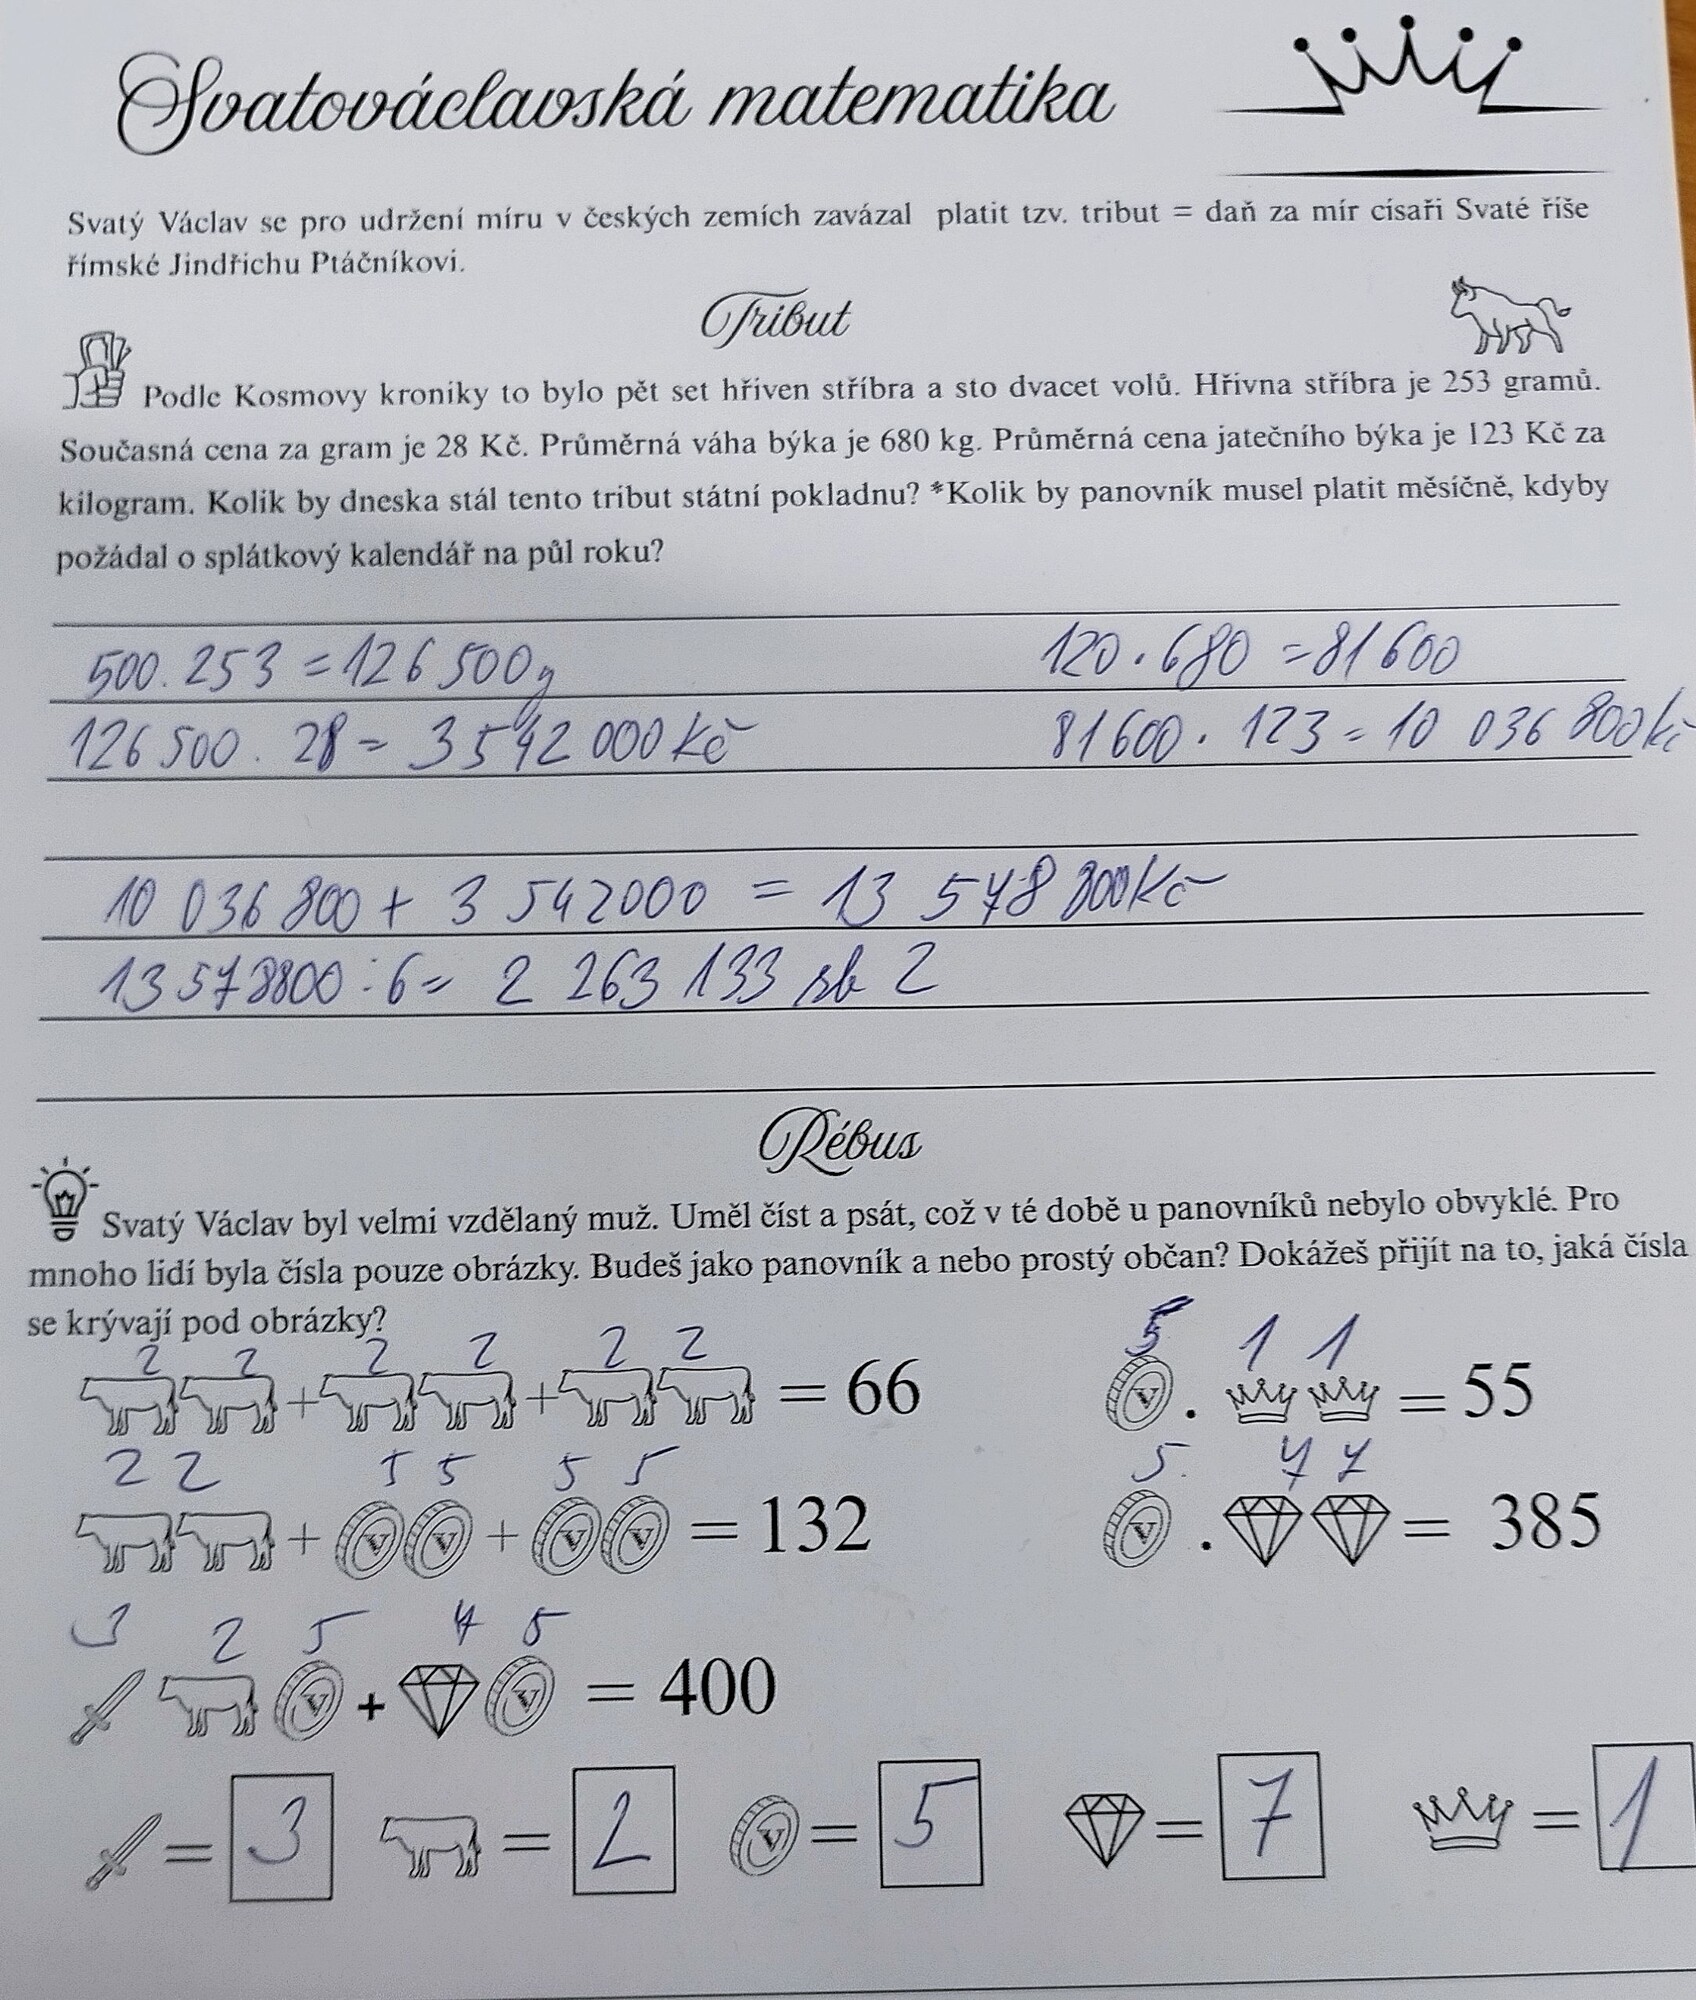 Svatováclavská matematika
Svatý Václav se pro udržení míru v českých zemích zavázal platit tzv. tribut = daň za mír císaři Svaté říše
římské Jindřichu Ptáčníkovi.
Tribut
Podle Kosmovy kroniky to bylo pět set hřiven stříbra a sto dvacet volů. Hřivna stříbra je 253 gramů.
Současná cena za gram je 28 Kč. Průměrná váha býka je 680 kg. Průměrná cena jatečního býka je 123 Kč za
kilogram. Kolik by dneska stál tento tribut státní pokladnu? *Kolik by panovník musel platit měsíčně, kdyby
požádal o splátkový kalendář na půl roku?
500 . 253 = 126 500g
120 . 680 = 81 600
126 500 . 28 = 3 542 000 Kč
81 600 . 123 = 10 036 800 Kč
10 036 800 + 3 542000 = 13 578 800 Kč
13 578800 : 6 = 2 263 133 zb 2
Rébus
Svatý Václav byl velmi vzdělaný muž. Uměl číst a psát, což v té době u panovníků nebylo obvyklé. Pro
mnoho lidí byla čísla pouze obrázky. Budeš jako panovník a nebo prostý občan? Dokážeš přijít na to, jaká čísla
se krývají pod obrázky?
2 2 2 2 2 2
+ + = 66
5 1 1
V . = 55
2 2 5 5 5 5
+ V V + V V = 132
5. 7 7
V . = 385
3 2 5 7 5
V + V = 400
= 3 = 2 V = 5 = 7 = 1